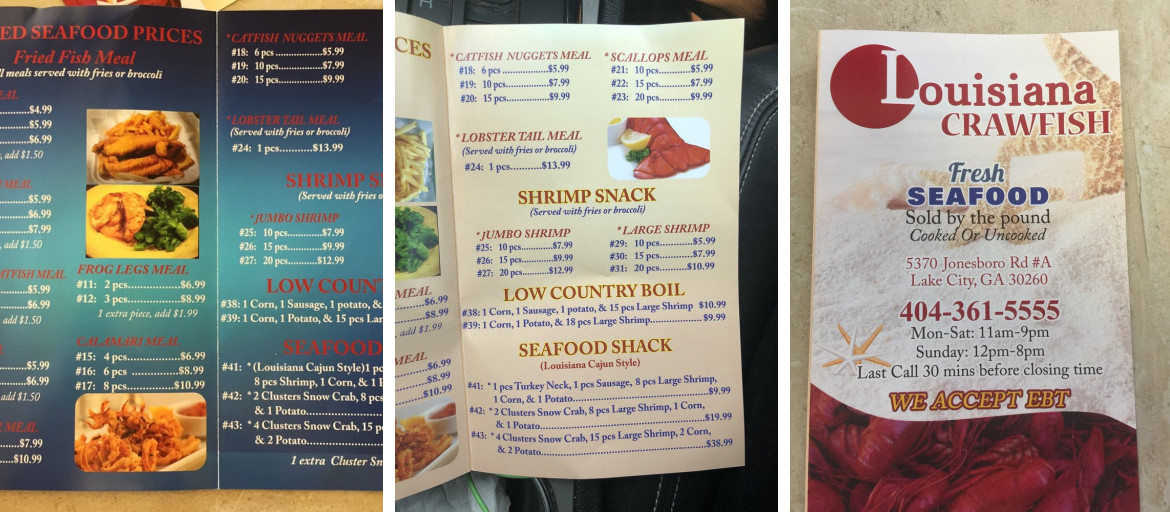 ED SEAFOOD PRICES
Fried Fish Meal
ll meals served with fries or broccoli
EAL
$4.99
$5.99
$6.99
, add $1.50
MEAL
$5.99
$6.99
$7.99
, add $1.50
ATFISH MEAL
$5.99
$6.99
add $1.50
$5.99
$6.99
MEAL
$7.99
$10.99
FROG LEGS MEAL
#11: 2 pcs.....................$6.99
#12: 3 pcs.....................$8.99
1 extra piece, add $1.99
CALAMARI MEAL
#15: 4 pcs.....................$6.99
#16: 6 pcs.....................$8.99
#17: 8 pcs...................$10.99
*CATFISH NUGGETS MEAL
#18: 6 pcs ..................$5.99
#19: 10 pcs.................$7.99
#20: 15 pcs.................$9.99
*LOBSTER TAIL MEAL
(Served with fries or broccoli)
#24: 1 pcs............$13.99
SHRIMP S
(Served with fries o
*JUMBO SHRIMP
#25: 10 pcs............$7.99
#26: 15 pcs............$9.99
#27: 20 pcs..........$12.99
LOW COUNT
#38: 1 Corn, 1 Sausage, 1 potato, &
#39: 1 Corn, 1 Potato, & 15 pcs Lar
SEAFOOD
#41: *(Louisiana Cajun Style)1 pc
8 pcs Shrimp, 1 Corn, & 1 P
#42: *2 Clusters Snow Crab, 8 pcs
& 1 Potato
#43: *4 Clusters Snow Crab, 15 pc
& 2 Potato
1 extra Cluster Sn
CES
MEAL
$6.99
$8.99
, add $1.99
MEAL
$6.99
$8.99
$10.99
*CATFISH NUGGETS MEAL
#18: 6 pcs ..................$5.99
#19: 10 pcs.................$7.99
#20: 15 pcs.................$9.99
*SCALLOPS MEAL
#21: 10 pcs.................$5.99
#22: 15 pcs.................$7.99
#23: 20 pcs.................$9.99
*LOBSTER TAIL MEAL
(Served with fries or broccoli)
#24: 1 pcs............$13.99
SHRIMP SNACK
(Served with fries or broccoli)
*JUMBO SHRIMP
#25: 10 pcs............$7.99
#26: 15 pcs............$9.99
#27: 20 pcs..........$12.99
*LARGE SHRIMP
#29: 10 pcs............$5.99
#30: 15 pcs............$7.99
#31: 20 pcs..........$10.99
LOW COUNTRY BOIL
#38: 1 Corn, 1 Sausage, 1 potato, & 15 pcs Large Shrimp $10.99
#39: 1 Corn, 1 Potato, & 18 pcs Large Shrimp.................. $9.99
SEAFOOD SHACK
(Louisiana Cajun Style)
#41: *1 pcs Turkey Neck, 1 pcs Sausage, 8 pcs Large Shrimp,
1 Corn, & 1 Potato...................................................$9.99
#42: *2 Clusters Snow Crab, 8 pcs Large Shrimp, 1 Corn,
& 1 Potato...............................................................$19.99
#43: *4 Clusters Snow Crab, 15 pcs Large Shrimp, 2 Corn,
& 2 Potato...............................................................$38.99
Louisiana
CRAWFISH
Fresh
SEAFOOD
Sold by the pound
Cooked Or Uncooked
5370 Jonesboro Rd #A
Lake City, GA 30260
404-361-5555
Mon-Sat: 11am-9pm
Sunday: 12pm-8pm
Last Call 30 mins before closing time
WE ACCEPT EBT